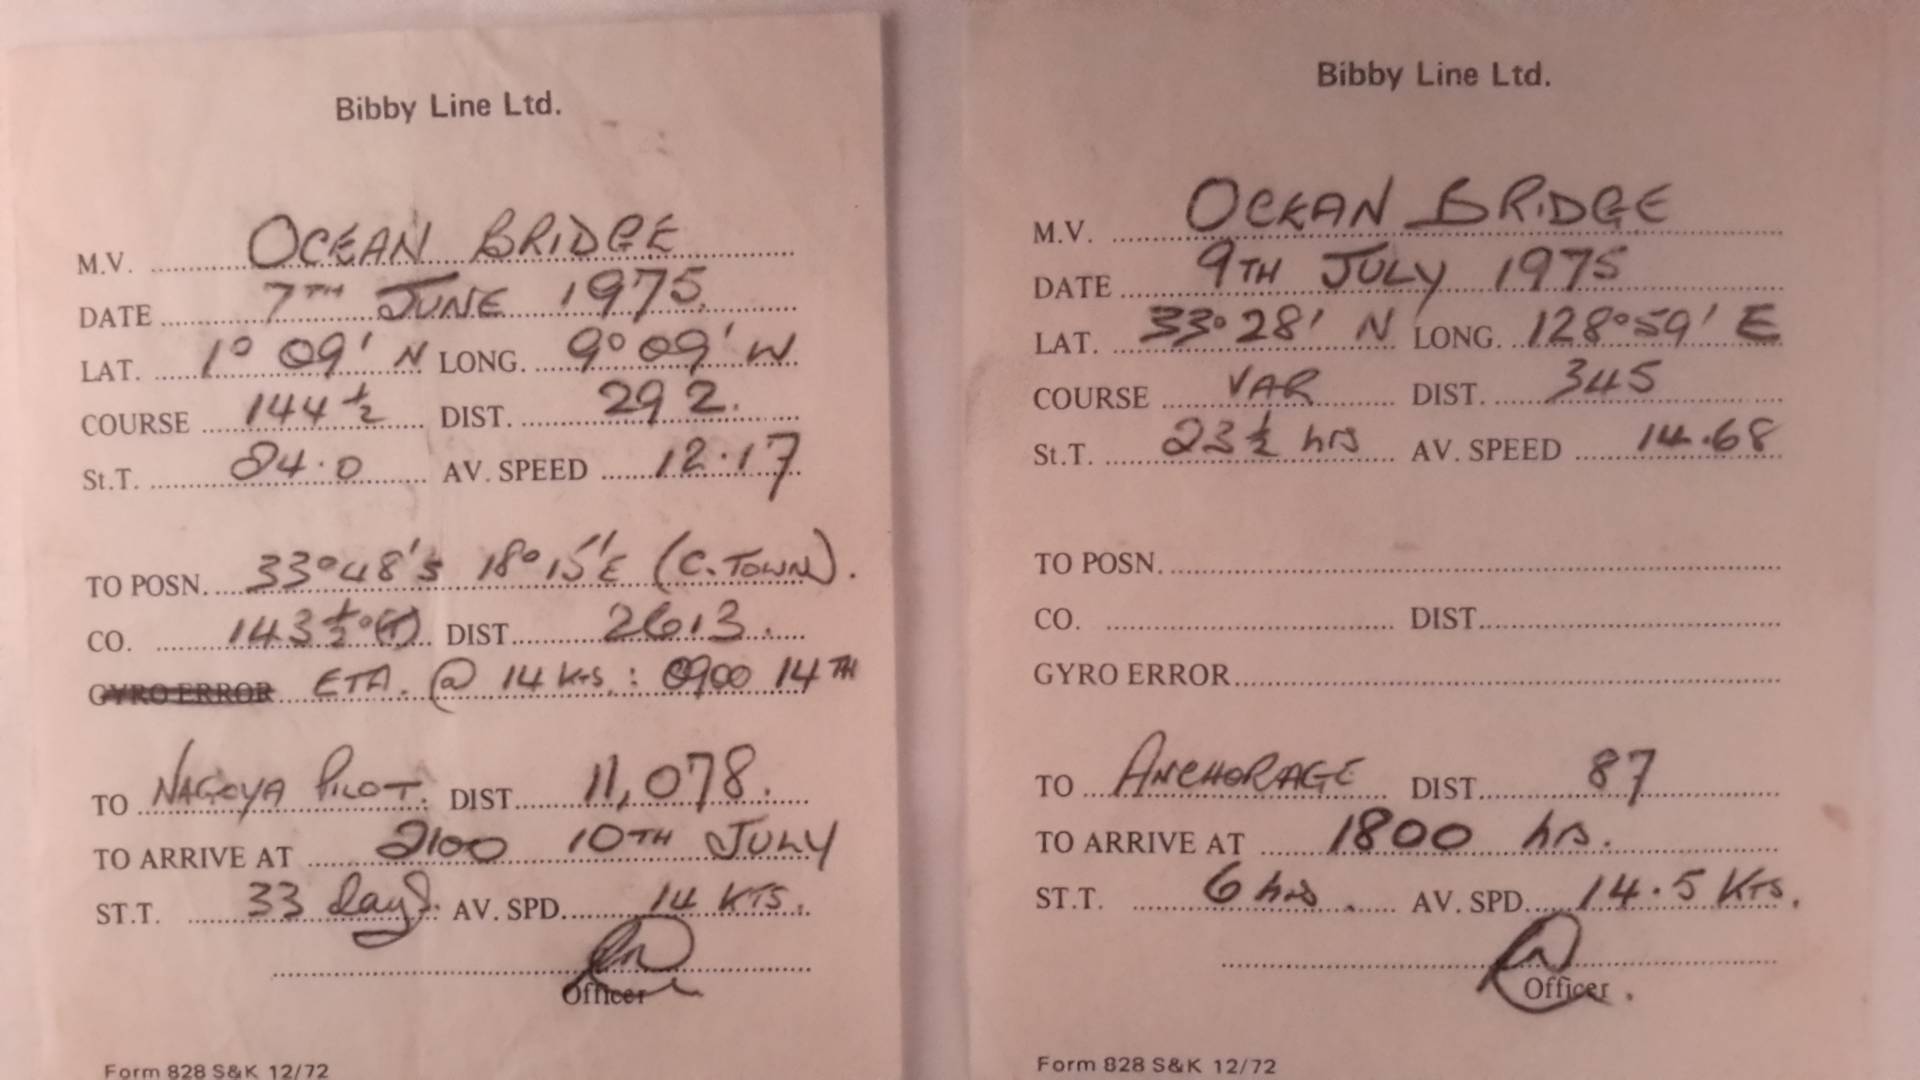 Bibby Line Ltd.
M.V. OCEAN BRIDGE
DATE 7TH JUNE 1975.
LAT. 1° 09' N LONG. 9° 09' W.
COURSE 144½ DIST. 292.
St.T. 24.0 AV. SPEED 12.17
TO POSN. 33°48'S 18°15'E (C. TOWN).
CO. 143½°(T) DIST 2613.
GYRO ERROR ETA. @ 14 Kts.: 0900 14TH
TO NAGOYA PILOT. DIST 11,078.
TO ARRIVE AT 2100 10TH JULY
ST.T. 33 days. AV. SPD. 14 KTS.
Officer
Form 828 S&K 12/72
Bibby Line Ltd.
M.V. OCEAN BRIDGE
DATE 9TH JULY 1975
LAT. 33°28' N LONG. 128°59' E
COURSE VAR DIST. 345
St.T. 23½ hrs AV. SPEED 14.68
TO POSN.
CO. DIST
GYRO ERROR
TO ANCHORAGE DIST 87
TO ARRIVE AT 1800 hrs.
ST.T. 6 hrs. AV. SPD. 14.5 KTS.
Officer.
Form 828 S&K 12/72